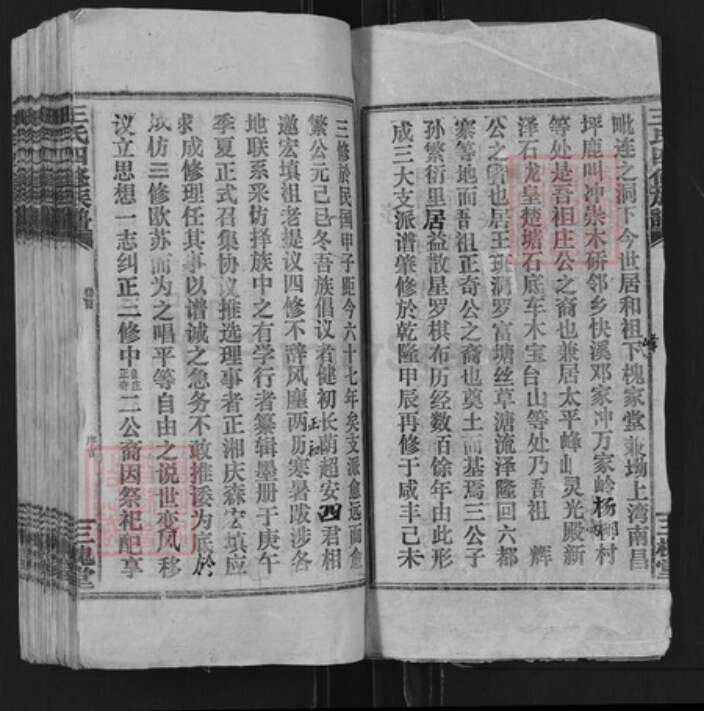 毗连之洞下今世居和祖下槐家堂兼坳上湾南昌
坪鹿叫冲崇木研邻乡快溪邓家冲万家岭杨柳村
等处是吾祖庄公之裔也兼居太平峰山灵光殿新
泽石龙皇楚塘石底车木宝台山等处乃吾祖辉
公之裔也居王班洞罗富塘丝草溏流泽隆回六都
寨等地而吾祖正奇公之裔也奠土而基焉三公子
孙繁衍里居益散星罗棋布历经数百余年由此形
成三大支派谱肇修於乾隆甲辰再修于咸丰己未
三修於民国甲子距今六十七年矣支派愈远而愈
繁公元己巳冬吾族倡议者健初长荫超安四君相
正初
邀宏填祖老提议四修不辞风塵两历寒暑跋涉各
地联系采访择族中之有学行者纂辑墨册于庚午
季夏正式召集协议推选理事者正湘庆森宏填应
求成修理任其事以谱诚之急务不敢推诿为底於
成仿三修欧苏而为之唱平等自由之说世变风移
议立思想一志纠正三修中良庄正奇二公裔因祭祀配享
王氏四修族谱
卷首
序言
三槐堂
王氏四修族谱
三槐堂